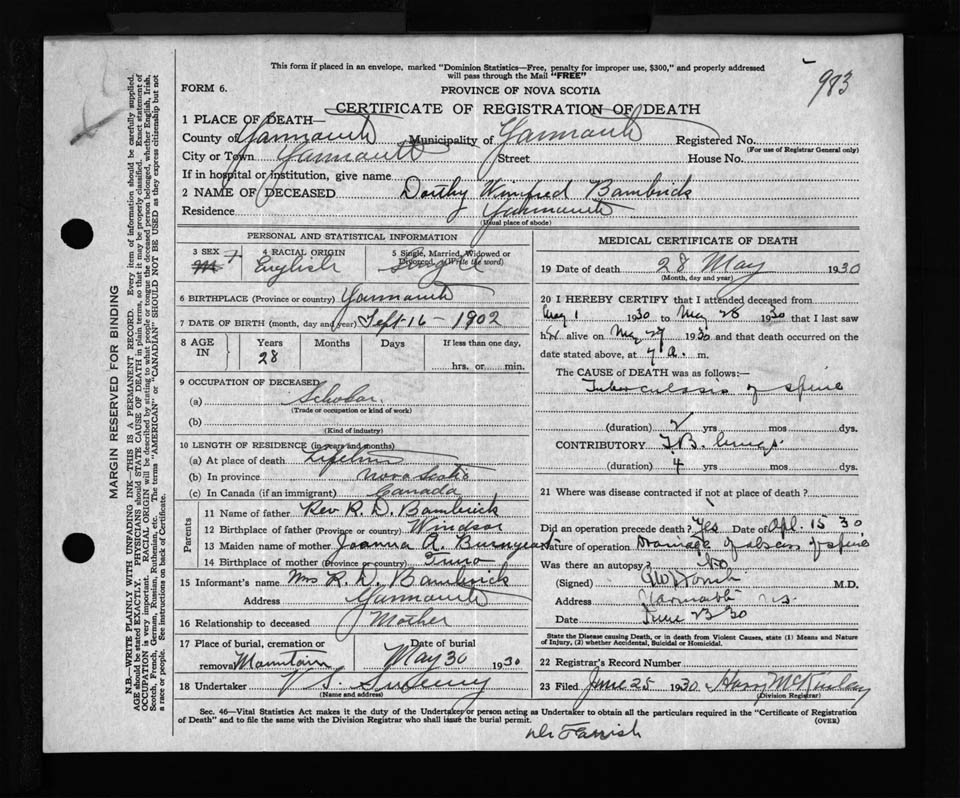 This form if placed in an envelope, marked "Dominion Statistics—Free, penalty for improper use, $300," and properly addressed
will pass through the Mail "FREE"
983
FORM 6.
PROVINCE OF NOVA SCOTIA
CERTIFICATE OF REGISTRATION OF DEATH
1 PLACE OF DEATH—
County of Yarmouth Municipality of Yarmouth Registered No.
(For use of Registrar General only)
City or Town Yarmouth Street House No.
If in hospital or institution, give name
2 NAME OF DECEASED Dorthy Winifred Bambrick
Residence Yarmouth
(Usual place of abode)
PERSONAL AND STATISTICAL INFORMATION
3 SEX M F 4 RACIAL ORIGIN English 5 Single, Married, Widowed or Divorced (Write the word) Single
6 BIRTHPLACE (Province or country) Yarmouth
7 DATE OF BIRTH (month, day and year) Sept 16 - 1902
8 AGE IN Years 28 Months Days If less than one day, hrs. or min.
9 OCCUPATION OF DECEASED
(a) Scholar
(Trade or occupation or kind of work)
(b)
(Kind of industry)
10 LENGTH OF RESIDENCE (in years and months)
(a) At place of death Lifetime
(b) In province Nova Scotia
(c) In Canada (if an immigrant) Canada
Parents
11 Name of father Rev R. D. Bambrick
12 Birthplace of father (Province or country) Windsor
13 Maiden name of mother Joanna A.
14 Birthplace of mother (Province or country) Truro
15 Informant's name Mrs R. D. Bambrick
Address Yarmouth
16 Relationship to deceased Mother
17 Place of burial, cremation or removal Mountain Date of burial May 30 1930
18 Undertaker V S. Sweeny
(Name and address)
MEDICAL CERTIFICATE OF DEATH
19 Date of death 28 May 1930
(Month, day and year)
20 I HEREBY CERTIFY that I attended deceased from
May 1 1930 to May 28 1930 that I last saw
her alive on May 27 1930 and that death occurred on the
date stated above, at 7 a. m.
The CAUSE OF DEATH was as follows:—
Tuberculosis of spine
(duration) 2 yrs mos dys.
CONTRIBUTORY T.B. lungs
(duration) 4 yrs mos dys.
21 Where was disease contracted if not at place of death?
Did an operation precede death? Yes Date of Apl. 15 30
Nature of operation Drainage of abscess of spine
Was there an autopsy? No
(Signed) M.D.
Address Yarmouth N.S.
Date June 23 30
State the Disease causing Death, or in death from Violent Causes, state (1) Means and Nature
of Injury, (2) whether Accidental, Suicidal or Homicidal.
22 Registrar's Record Number
23 Filed June 25 1930 Harry McKinlay
(Division Registrar)
Sec. 46—Vital Statistics Act makes it the duty of the Undertaker or person acting as Undertaker to obtain all the particulars required in the "Certificate of Registration
of Death" and to file the same with the Division Registrar who shall issue the burial permit.
(OVER)
Dr Farrish
MARGIN RESERVED FOR BINDING
N.B.—WRITE PLAINLY WITH UNFADING INK—THIS IS A PERMANENT RECORD. Every item of information should be carefully supplied.
AGE should be stated EXACTLY. PHYSICIANS should STATE CAUSE OF DEATH in plain terms, so that it may be properly classified. Exact statement of
OCCUPATION is very important. RACIAL ORIGIN will be described by stating to what people or tongue the deceased person belonged, whether English, Irish,
Scotch, French, German, Russian, Ruthenian, etc. The terms "AMERICAN" or "CANADIAN" SHOULD NOT BE USED as they express citizenship but not
a race or people. See instructions on back of Certificate.